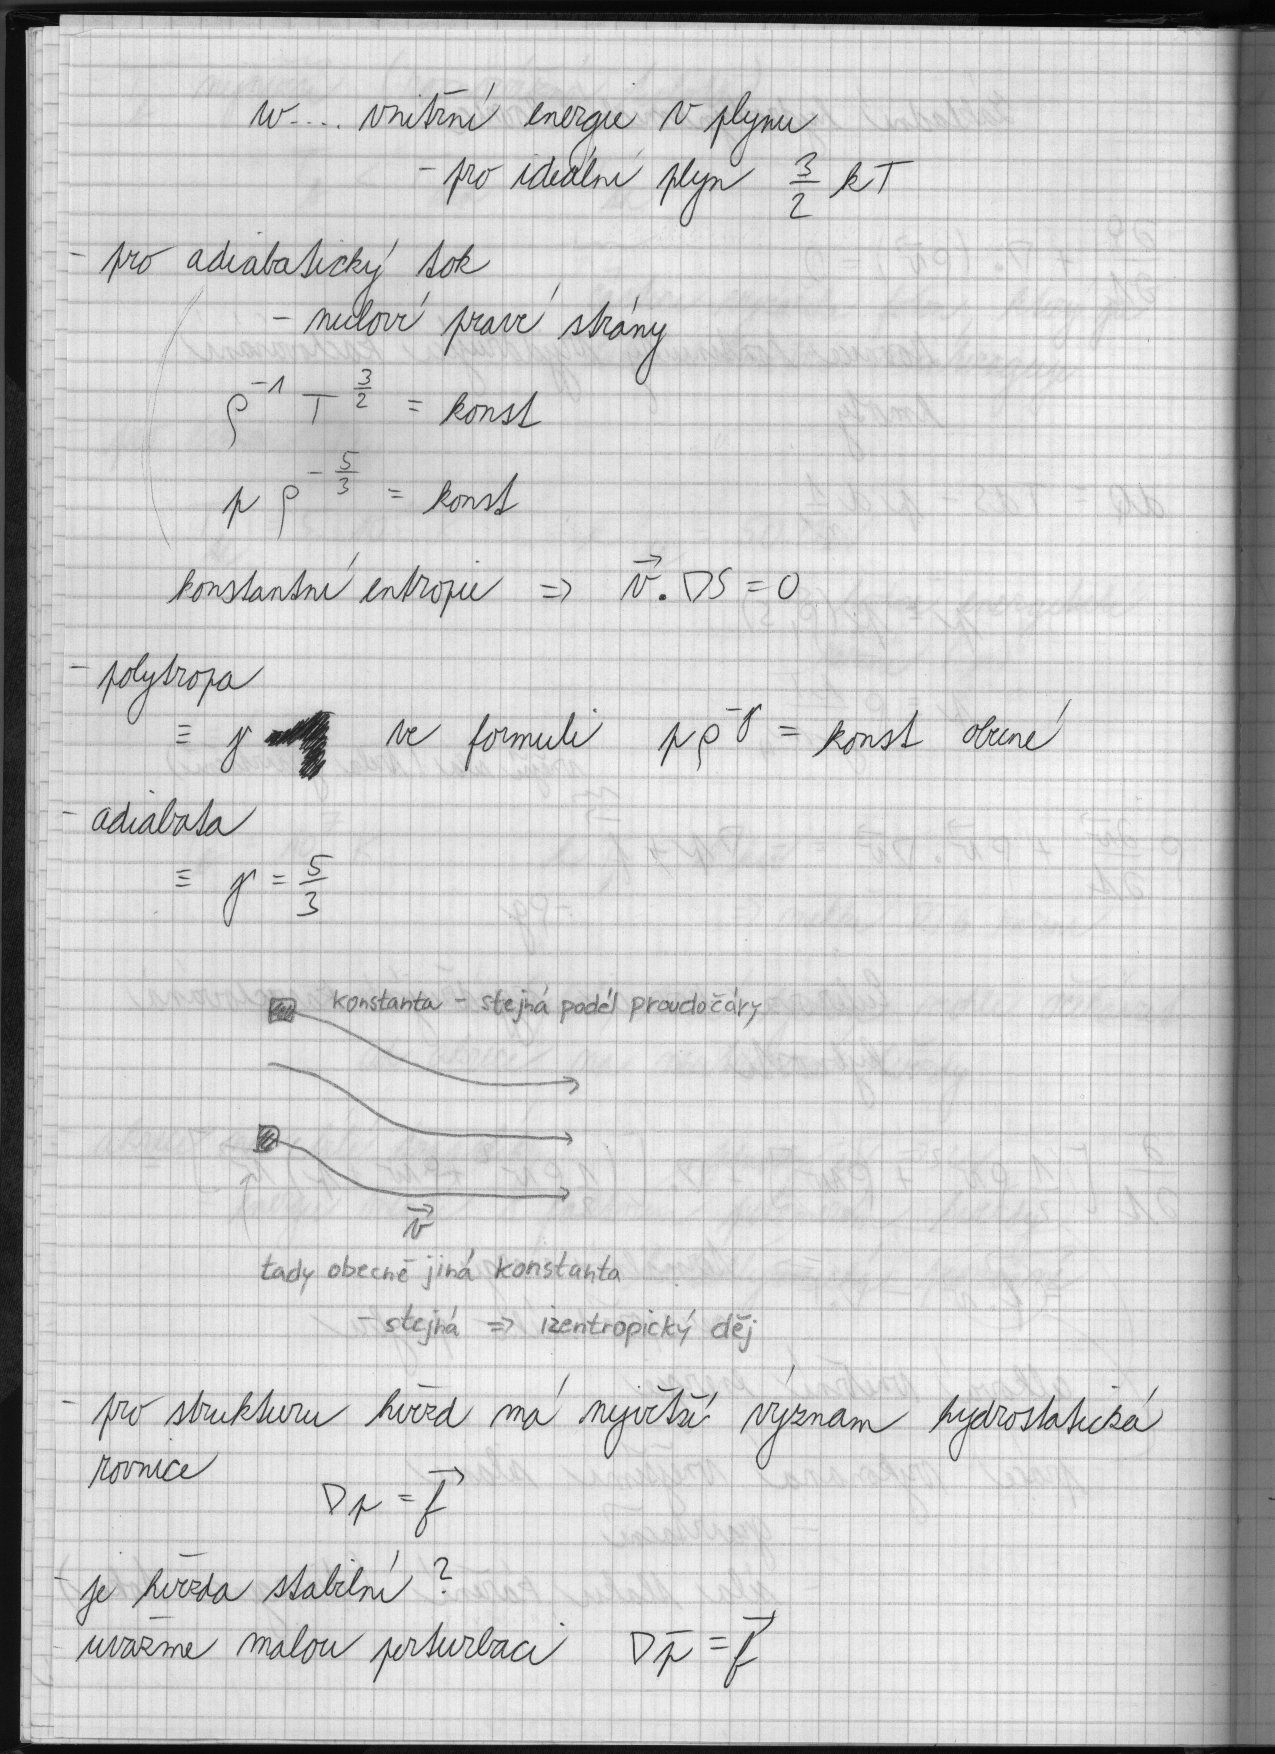 w.... vnitřní energie v plynu
- pro ideální plyn 3/2 kT
- pro adiabatický tok
- nulové pravé strany
ρ^-1 T^3/2 = konst
p ρ^-5/3 = konst
konstantní entropie => v⃗ . ∇S = 0
- polytropa
≡ γ ve formuli p ρ^-γ = konst obecné
- adiabata
≡ γ = 5/3
konstanta - stejná podél proudočáry
v⃗
tady obecně jiná konstanta
- stejná => izentropický děj
- pro strukturu hvězd má největší význam hydrostatická
rovnice
∇p = f⃗
- je hvězda stabilní ?
- uvažme malou perturbaci ∇p̄ = f⃗